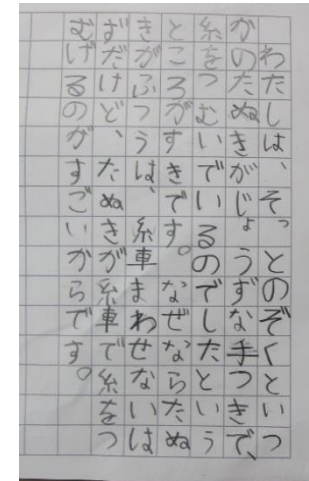 わたしは、そっとのぞくといつ
かのたぬきが、じょうずな手つきで、
糸をつむいでいるのでしたという
ところがすきです。なぜならたぬ
きがふつうは、糸車まわせないは
ずだけど、たぬきが糸車で糸をつ
むげるのがすごいからです。